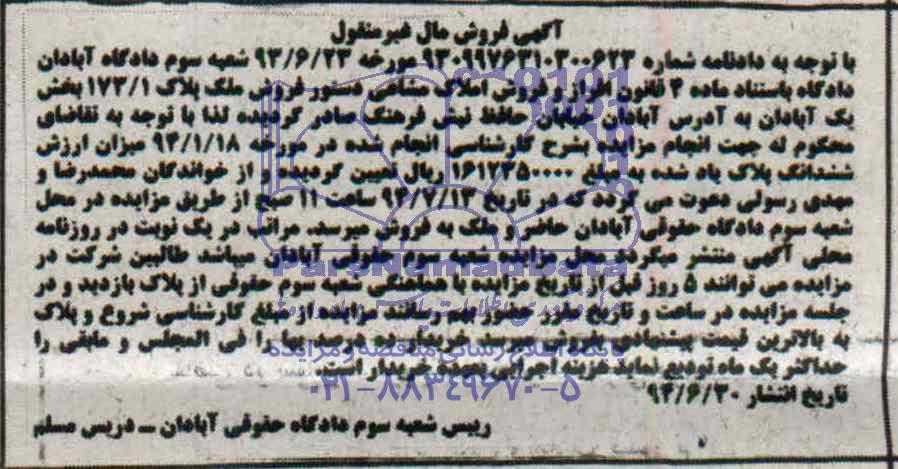 آگهی فروش مال غیرمنقول
با توجه به دادنامه شماره ۹۳۰۹۹۷۶۳۱۰۳۰۰۶۲۳ مورخه ۹۳/۶/۲۳ شعبه سوم دادگاه آبادان
دادگاه باستناد ماده ۴ قانون افراز و فروش املاک مشاعی دستور فروش ملک پلاک ۱۷۳/۱ بخش
یک آبادان به آدرس آبادان خیابان حافظ نبش فرهنگ صادر گردیده لذا با توجه به تقاضای
محکوم له جهت انجام مزایده بشرح کارشناسی انجام شده در مورخه ۹۴/۱/۱۸ میزان ارزش
ششدانگ پلاک یاد شده به مبلغ ۱۶۱۲۳۵۰۰۰۰ ریال تعیین گردیده و از خواندگان محمدرضا و
مهدی رسولی دعوت می گردد که در تاریخ ۹۴/۷/۱۳ ساعت ۱۱ صبح از طریق مزایده در محل
شعبه سوم دادگاه حقوقی آبادان حاضر و ملک به فروش میرسد. مراتب در یک نوبت در روزنامه
محلی آگهی منتشر میگردد محل مزایده شعبه سوم حقوقی آبادان میباشد طالبین شرکت در
مزایده می توانند ۵ روز قبل از تاریخ مزایده با هماهنگی شعبه سوم حقوقی از پلاک بازدید و در
جلسه مزایده در ساعت و تاریخ مقرر حضور بهم رسانند مزایده از مبلغ کارشناسی شروع و پلاک
به بالاترین قیمت پیشنهادی بفروش میرسد خریدار ده درصد بها را فی المجلس و مابقی را
حداکثر یک ماه تودیع نماید هزینه اجرایی بعهده خریدار است.
تاریخ انتشار ۹۴/۶/۳۰
رییس شعبه سوم دادگاه حقوقی آبادان ــ دریس مسلم
ParsNamadData
پایگاه اطلاع رسانی مناقصه و مزایده
۰۲۱-۸۸۳۴۹۶۷۰-۵